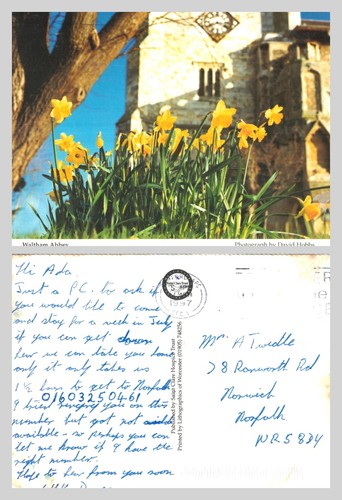 Waltham Abbey
Photograph by David Hobbs
Hi Ada.
Just a P.C. to ask if
you would like to come
and stay for a week in July
if you can get down
here we can take you home
only it only takes us
1½ hrs to get to Norfolk
01603250461
I tried ringing you on this
number but got not
available - so perhaps you can
let me know if I have the
right number.
Hope to hear from you soon
1997
Published by Saint Clare Hospice Trust
Printed by Lithographics of Worcester (01905) 748256
Mrs. A Twedle
78 Ranworth Rd
Norwich
Norfolk